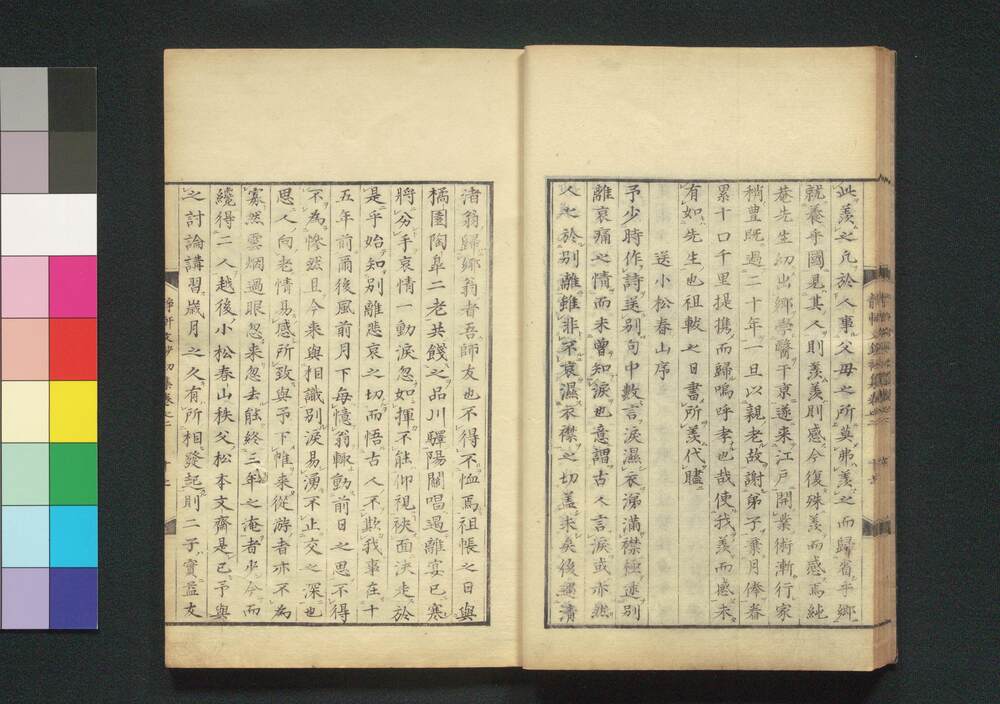 此羨之凡於人事父母之所莫弗羨之而歸省乎鄉
就養乎國是其人則羨羨則感今復殊羨而感焉純
菴先生幼出鄉學醫于京遂來江戶開業術漸行家
稍豊既過二十年一旦以親老故謝弟子棄月俸眷
累十口千里提攜而歸嗚呼孝也哉使我羨而感未
有如先生也祖軷之日書所羨代贐
送小松春山序
予少時作詩送別句中數言淚濕衣涕滿襟極述別
離哀痛之情而未曾知淚也意謂古人言淚或亦然
人之於別離雖非不哀濕衣襟之切蓋未矣後遇清
渚翁歸鄉翁者吾師友也不得不恤焉祖帳之日與
橘園陶皐二老共餞之品川驛陽關唱過離宴已寒
將分手哀情一動淚忽如揮不能仰視袂面決走於
是乎始知別離悲哀之切而悟古人不欺我事在十
五年前爾後風前月下每憶翁輙動前日之思不得
不為慘然且今來與相識別淚易湧不止交之深也
思人向老情易感所致與予下帷来從游者亦不為
寡然雲烟過眼忽來忽去能終三年之淹者少今而
纔得二人越後小松春山秩父松本文齋是已予與
之討論講習歲月之久有所相發起則二子實益友